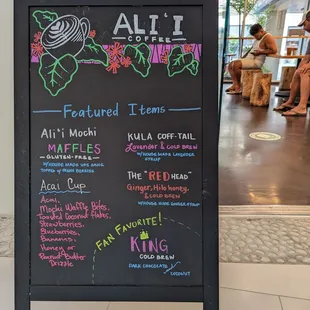 ALI'I
COFFEE
Featured Items
Ali'i Mochi
MAFFLES
GLUTEN-FREE
Acai Cup
Acai,
Mochi Waffle Bites,
Toasted Coconut flakes,
Strawberries,
Blueberries,
Bananas,
Honey or
Peanut Butter
Drizzle
KULA COFF-TAIL
Lavender & COLD BREW
W/HOUSE MADE LAVENDER
SYRUP
THE "RED HEAD"
Ginger, Hilo honey,
& COLD BREW
W/HOUSE MADE GINGER SYRUP
FAN FAVORITE!
KING
COLD BREW
DARK CHOCOLATE
COCONUT